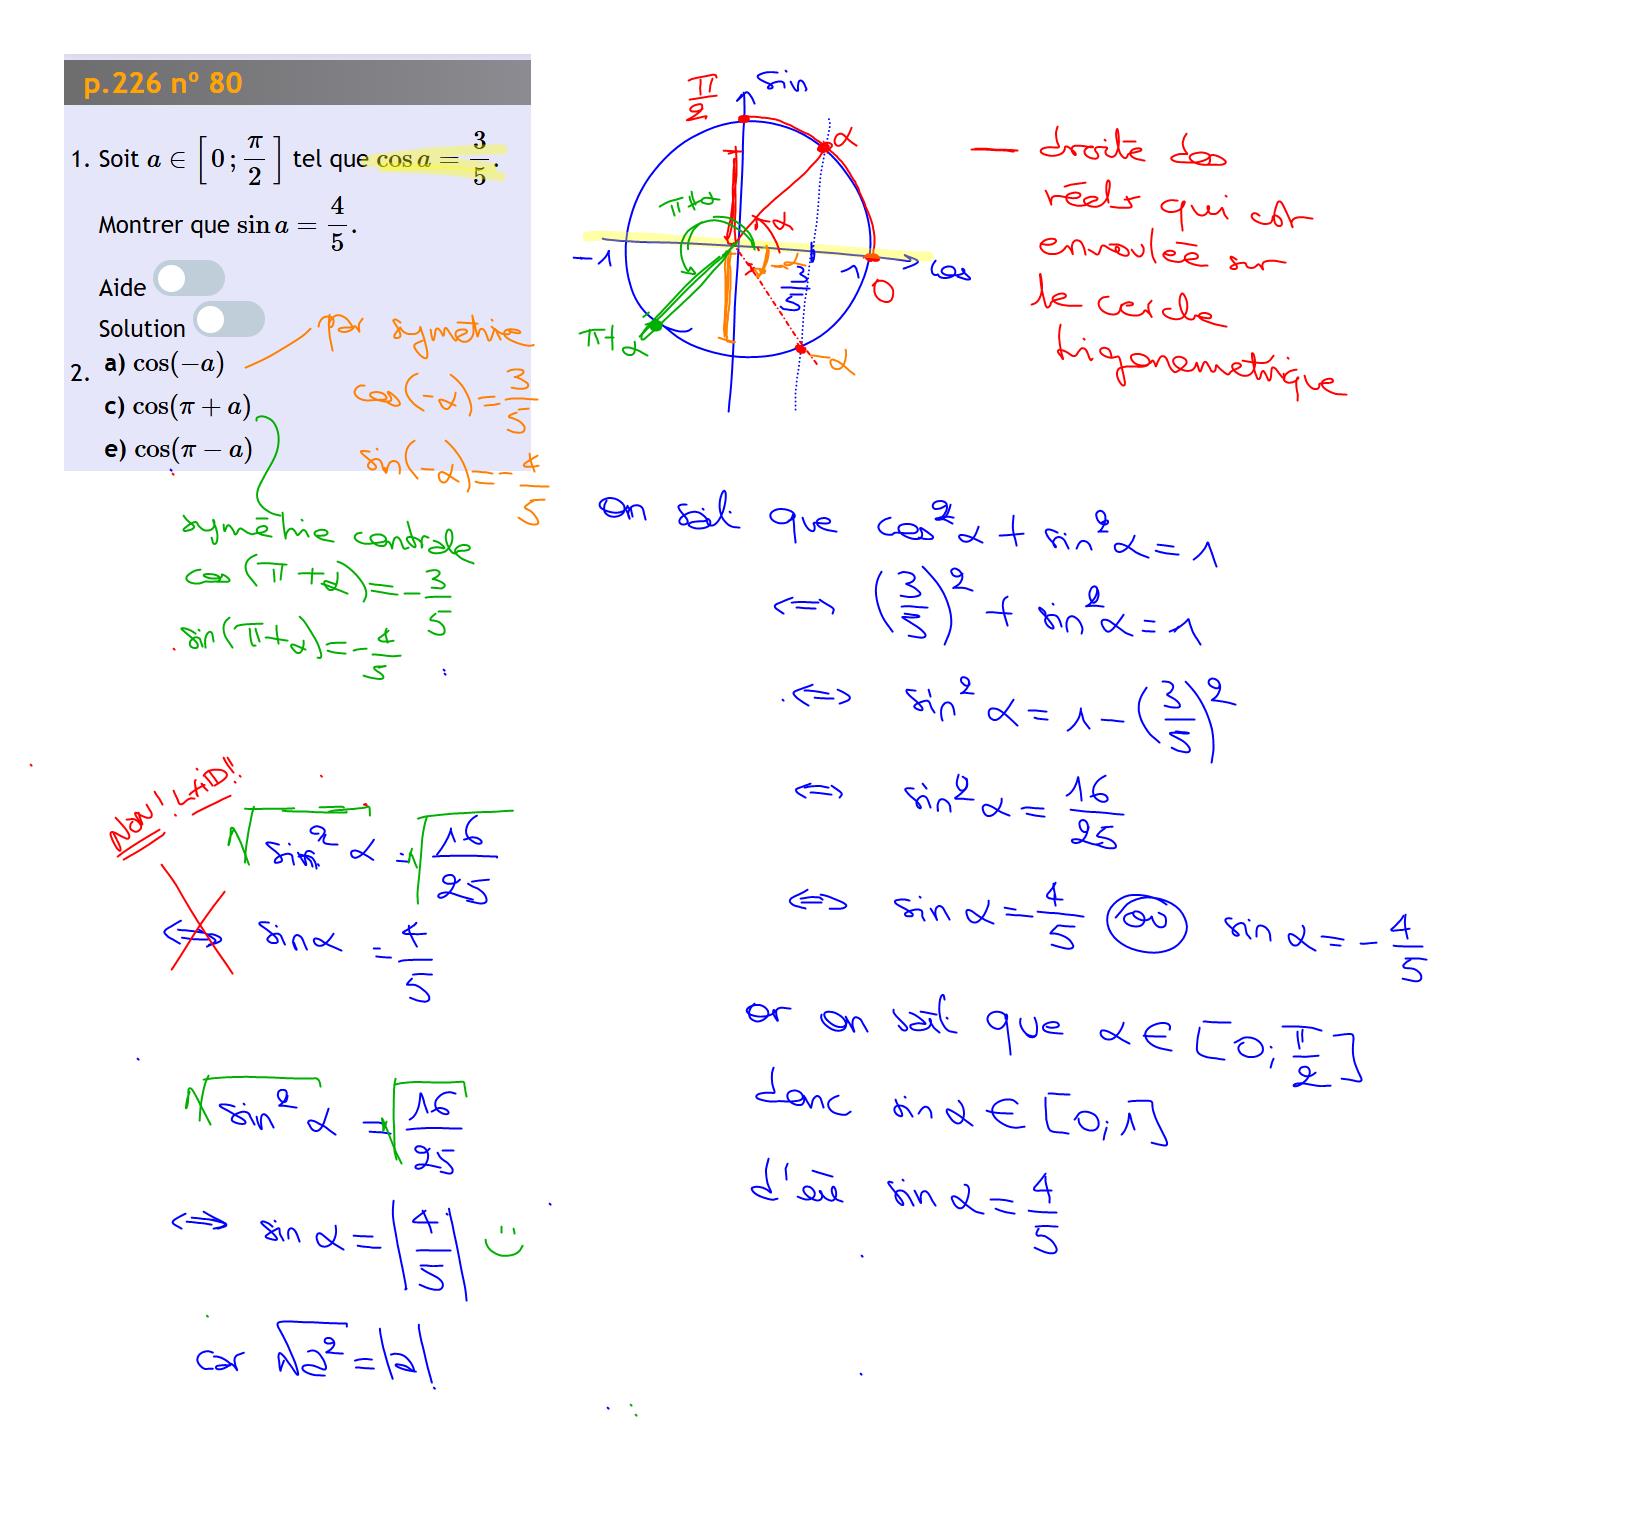 p.226 n° 80
1. Soit a ∈ [0 ; π/2] tel que cos a = 3/5.
Montrer que sin a = 4/5.
Aide
Solution
2. a) cos(−a)
c) cos(π + a)
e) cos(π − a)
par symétrie
cos(-α) = 3/5
sin(-α) = -4/5
symétrie centrale
cos(π+α) = -3/5
sin(π+α) = -4/5
π/2
sin
α
π+α
α
-1
-α
3/5
1
cos
0
π+α
-α
— droite des
réels qui est
enroulée sur
le cercle
trigonometrique
On sait que cos²α + sin²α = 1
⟺ (3/5)² + sin²α = 1
⟺ sin²α = 1 - (3/5)²
⟺ sin²α = 16/25
⟺ sin α = 4/5 ou sin α = -4/5
or on sait que α ∈ [0; π/2]
donc sin α ∈ [0; 1]
d'où sin α = 4/5
NON! LAID!!
√sin²α = √16/25
⟺ sin α = 4/5
√sin²α = √16/25
⟺ sin α = |4/5|
car √a² = |a|